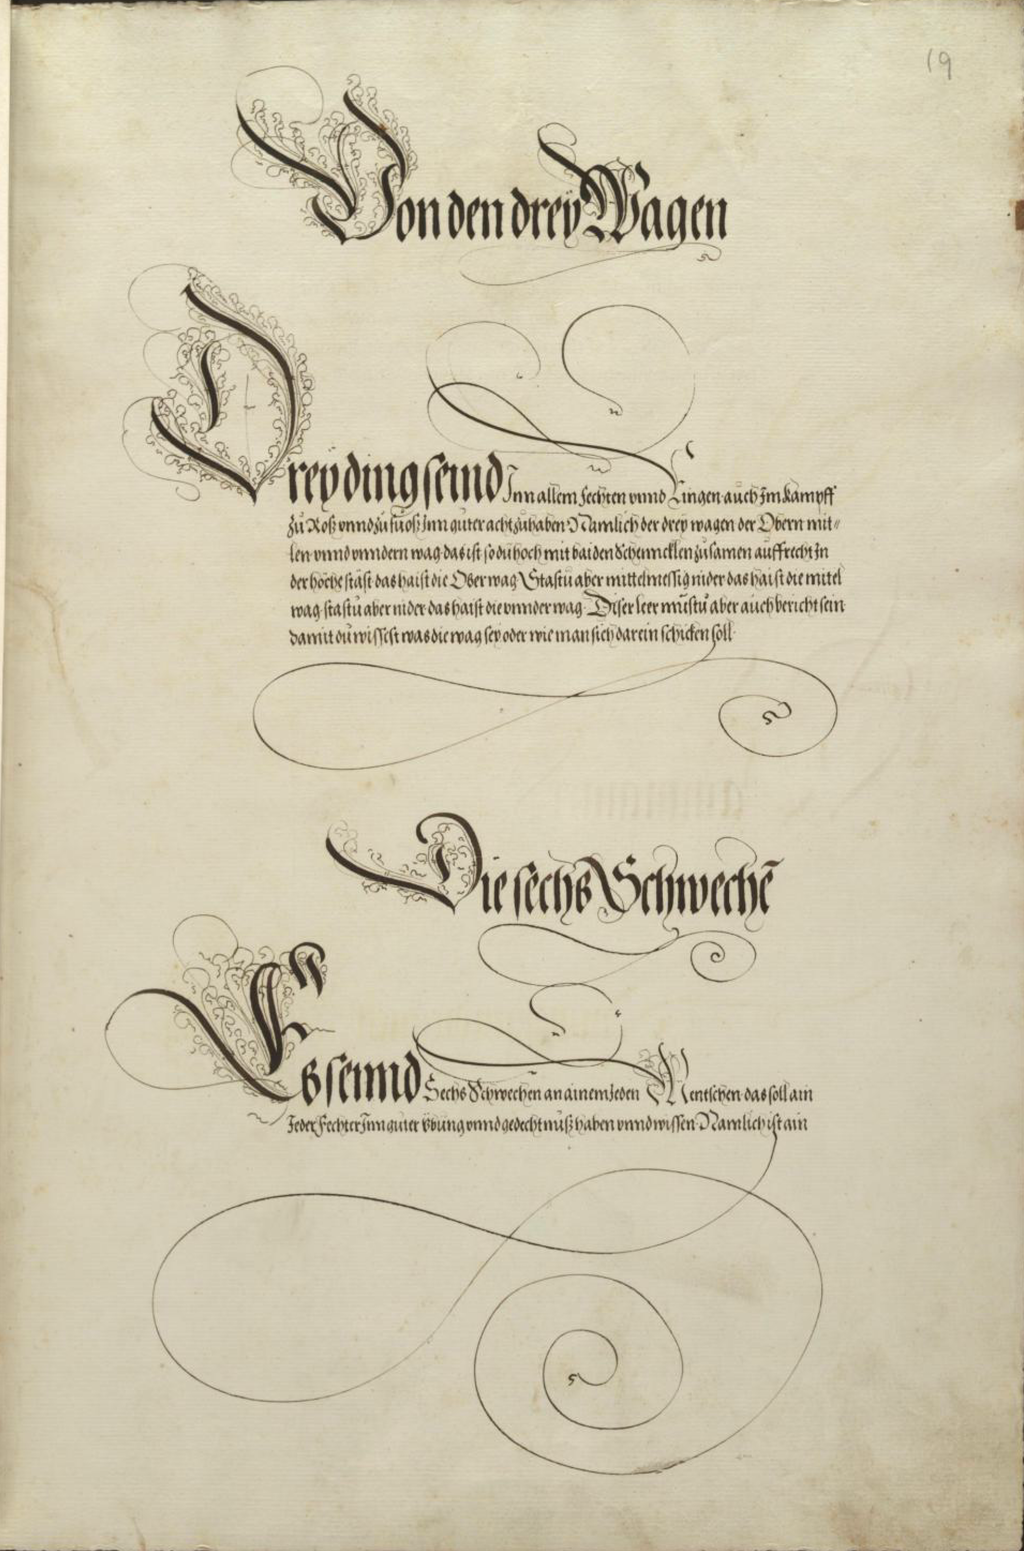 19
Von den dreÿ Wagen
Dreÿ ding seind Inn allem fechten vnnd Ringen auch Im kampff
zů Roß vnnd zů fuoß Inn guter acht zuhaben Namlich der drey wagen der Obern mit=
len vnnd vnndern wag das ist so du hoch mit baiden Schenncklen zusamen auffrecht In
der höche stast das haist die Ober wag Stastu aber mittelmessig nider das haist die mitel
wag stastu aber nider das haist die vnnder wag Diser leer mustu aber auch bericht sein
damit du wissest was die wag sey oder wie man sich darein schicken soll
Die sechs Schwechē
Es seinnd Sechs Schwechen an ainem Jeden Mentschen das soll ain
Jeder Fechter Inn guter Vbung vnnd gedechtnuß haben vnnd wissen Namlich ist ain